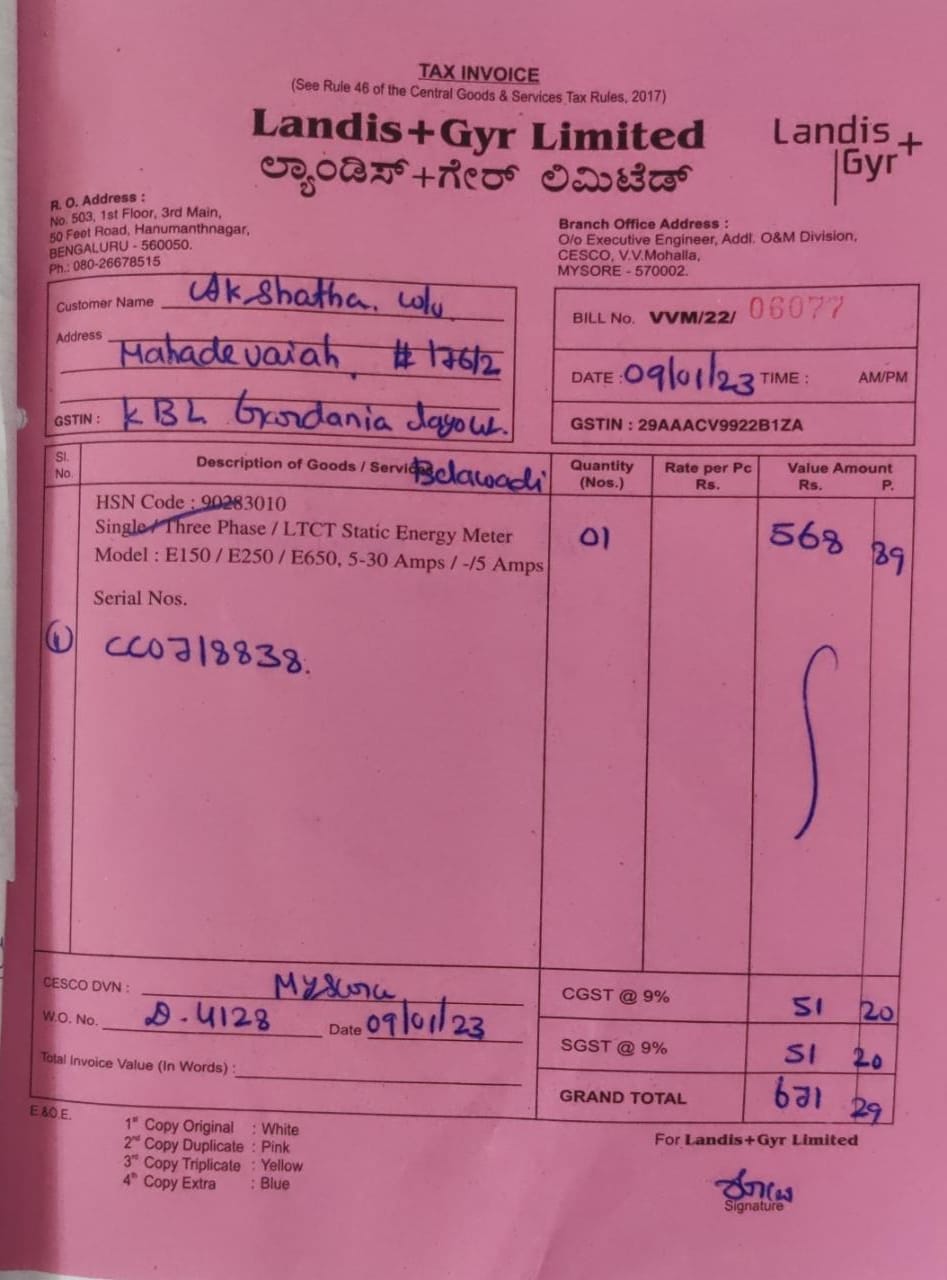 TAX INVOICE
(See Rule 46 of the Central Goods & Services Tax Rules, 2017)
Landis+Gyr Limited
ಲ್ಯಾಂಡಿಸ್+ಗೇರ್ ಲಿಮಿಟೆಡ್
Landis+
Gyr
R. O. Address :
No. 503, 1st Floor, 3rd Main,
50 Feet Road, Hanumanthnagar,
BENGALURU - 560050.
Ph.: 080-26678515
Branch Office Address :
O/o Executive Engineer, Addl. O&M Division,
CESCO, V.V.Mohalla,
MYSORE - 570002.
Customer Name Akshatha.
Address Mahadevaiah # 176/2
GSTIN : KBL
BILL No. VVM/22/ 06077
DATE : 09/01/23 TIME : AM/PM
GSTIN : 29AAACV9922B1ZA
Sl. No. Description of Goods / Services Quantity (Nos.) Rate per Pc Rs. Value Amount Rs. P.
Belawadi
HSN Code : 90283010
Single / Three Phase / LTCT Static Energy Meter 01 568 89
Model : E150 / E250 / E650, 5-30 Amps / -/5 Amps
Serial Nos.
1 CC0718838.
CESCO DVN : Mysuru
W.O. No. D-4128 Date 09/01/23
Total Invoice Value (In Words) :
CGST @ 9% 51 20
SGST @ 9% 51 20
GRAND TOTAL 671 29
E.&O.E.
1st Copy Original : White
2nd Copy Duplicate : Pink
3rd Copy Triplicate : Yellow
4th Copy Extra : Blue
For Landis+Gyr Limited
Signature